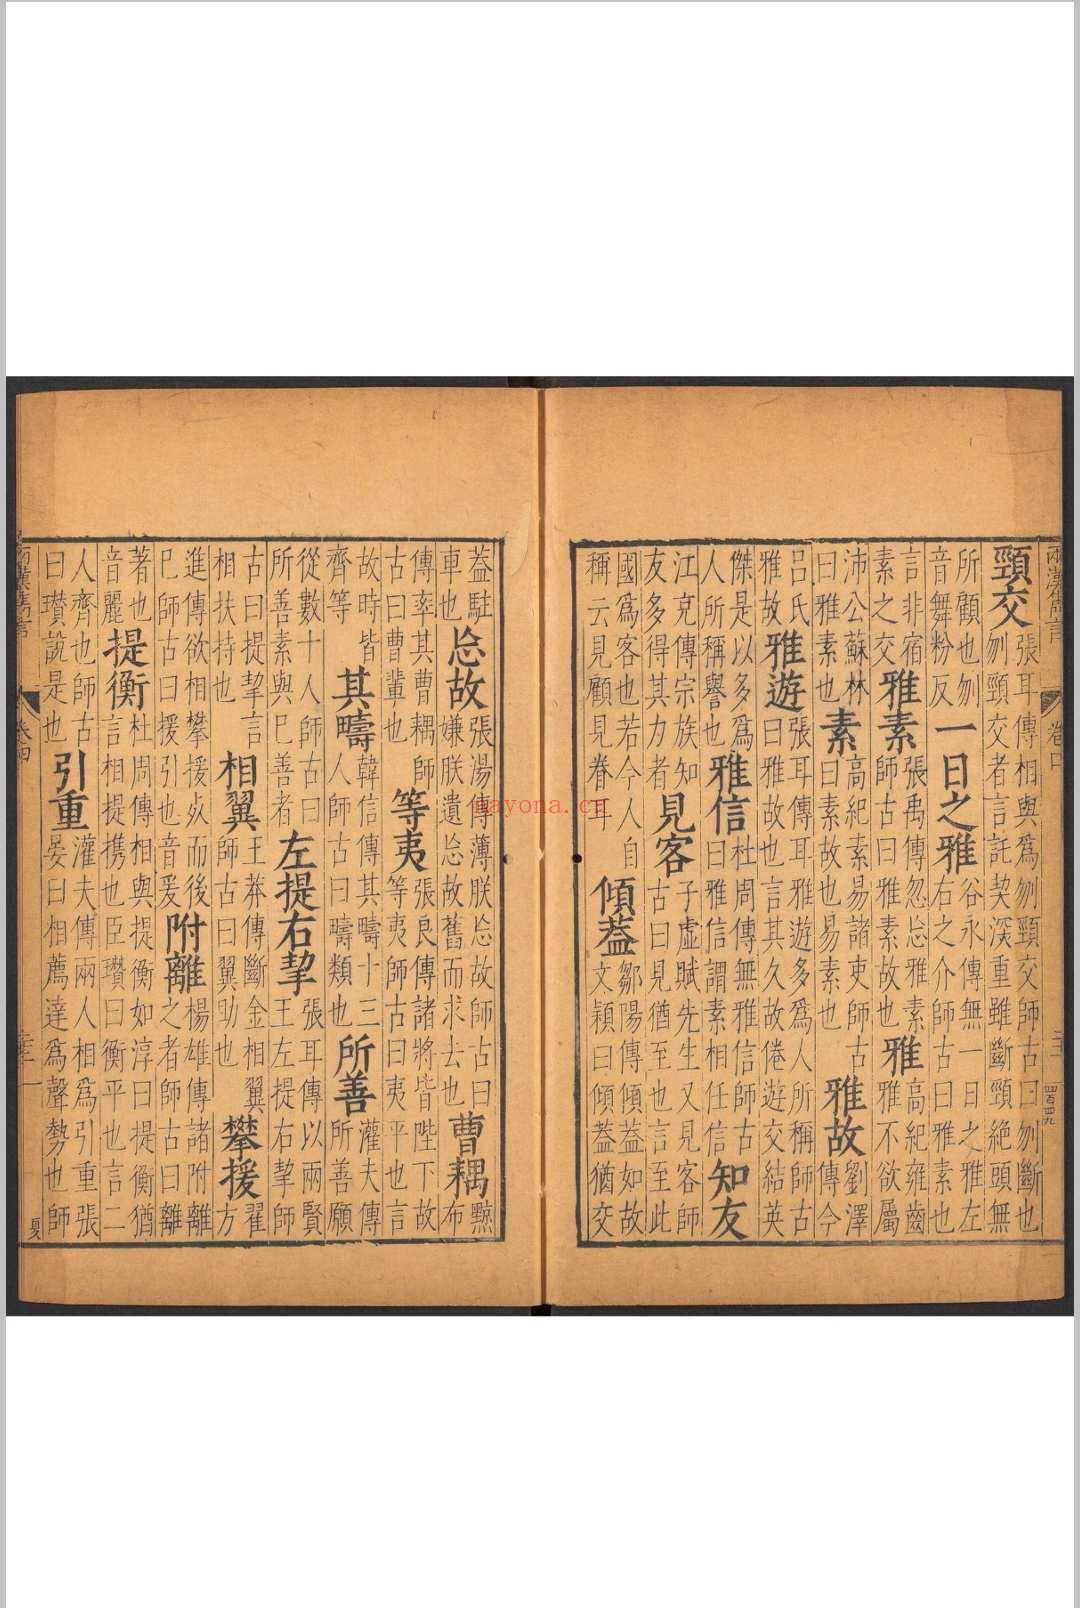 兩漢雋言
卷四
四百四九
頸交
張耳傳相與爲刎頸交師古曰刎斷也
刎頸交者言託契深重雖斷頸絕頭無
所顧也刎
音舞粉反
一日之雅
谷永傳無一日之雅左
右之介師古曰雅素也
言非宿
素之交
雅素
張禹傳忽忘雅素
師古曰雅素故也
雅
高紀雍齒
雅不欲屬
沛公蘇林
曰雅素也
素
高紀素易諸吏師古
曰素故也易素也
雅故
劉澤
傳今
呂氏
雅故
雅遊
張耳傳耳雅遊多爲人所稱師古
曰雅故也言其久故倦遊交結英
傑是以多爲
人所稱譽也
雅信
杜周傳無雅信師古
曰雅信謂素相任信
知友
江充傳宗族知
友多得其力者
見客
子虛賦先生又見客師
古曰見猶至也言至此
國爲客也若今人自
稱云見顧見眷耳
傾葢
鄒陽傳傾葢如故
文穎曰傾葢猶交
葢駐
車也
忘故
張湯傳薄朕忘故師古曰
嫌朕遺忘故舊而求去也
曹耦
黥
布
傳率其曹耦師
古曰曹輩也
等夷
張良傳諸將皆陛下故
等夷師古曰夷平也言
故時皆
齊等
其疇
韓信傳其疇十三
人師古曰疇類也
所善
灌夫傳
所善願
從數十人師古曰
所善素與巳善者
左提右挈
張耳傳以兩賢
王左提右挈師
古曰提挈言
相扶持也
相翼
王莽傳斷金相翼
師古曰翼助也
攀援
翟
方
進傳欲相攀援死而後
巳師古曰援引也音爰
附離
楊雄傳諸附離
之者師古曰離
著也
音麗
提衡
杜周傳相與提衡如淳曰提衡猶
言相提携也臣瓚曰衡平也言二
人齊也師古
曰瓚說是也
引重
灌夫傳兩人相爲引重張
晏曰相薦達爲聲勢也師
兩漢雋言
卷四
夏
nayona.cn